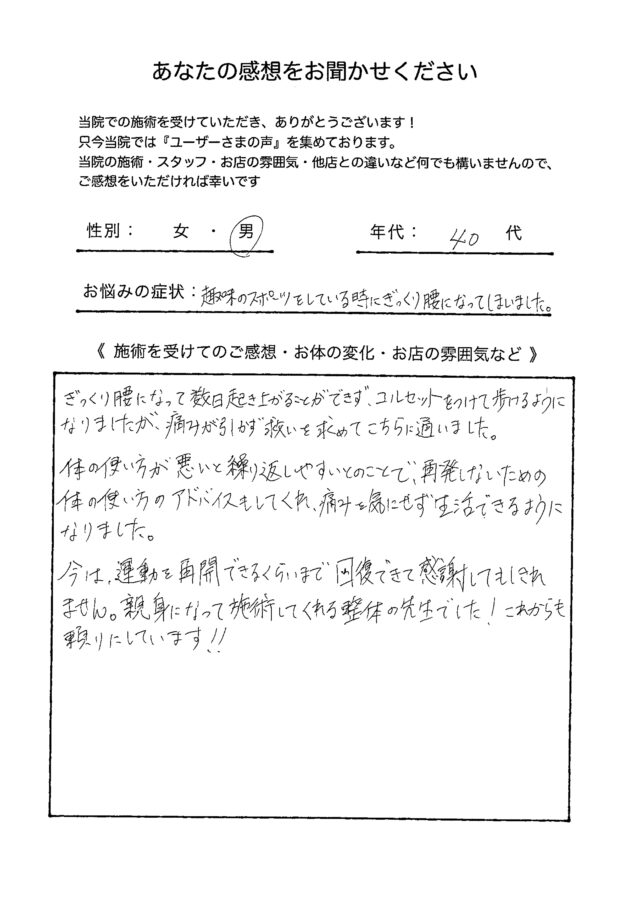 あなたの感想をお聞かせください
当院での施術を受けていただき、ありがとうございます！
只今当院では『ユーザーさまの声』を集めております。
当院の施術・スタッフ・お店の雰囲気・他店との違いなど何でも構いませんので、
ご感想をいただければ幸いです
性別： 女 ・ 男 年代： 40 代
お悩みの症状： 趣味のスポーツをしている時にぎっくり腰になってしまいました。
《 施術を受けてのご感想・お体の変化・お店の雰囲気など 》
ぎっくり腰になって数日起き上がることができず、コルセットをつけて歩けるように
なりましたが、痛みが引かず救いを求めてこちらに通いました。
体の使い方が悪いと繰り返しやすいとのことで、再発しないための
体の使い方のアドバイスもしてくれ、痛みを気にせず生活できるように
なりました。
今は、運動を再開できるくらいまで回復できて感謝してもしきれ
ません。親身になって施術してくれる整体の先生でした！これからも
頼りにしています!!